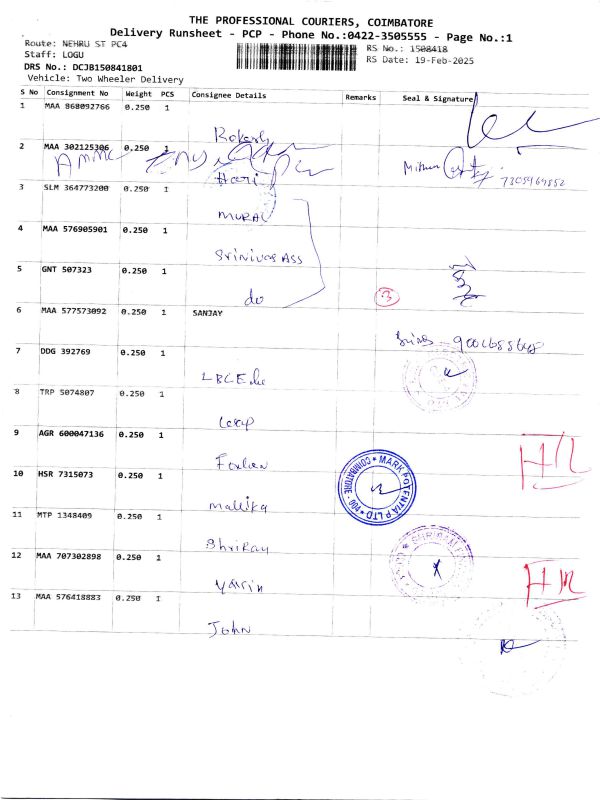 THE PROFESSIONAL COURIERS, COIMBATORE
Delivery Runsheet - PCP - Phone No.:0422-3505555 - Page No.:1
Route: NEHRU ST PC4
RS No.: 1508418
Staff: LOGU
RS Date: 19-Feb-2025
DRS No.: DCJB150841801
Vehicle: Two Wheeler Delivery
S No Consignment No Weight PCS Consignee Details Remarks Seal & Signature
1 MAA 868092766 0.250 1
2 MAA 302125306 0.250 1
Hari
3 SLM 364773200 0.250 1
MURALI
4 MAA 576905901 0.250 1
Srinivas ASS
5 GNT 507323 0.250 1
do
3
6 MAA 577573092 0.250 1 SANJAY
7 DDG 392769 0.250 1
8 TRP 5074807 0.250 1
9 AGR 600047136 0.250 1
10 HSR 7315073 0.250 1
MARK POTENTIA P LTD
COIMBATORE
Mallika
11 MTP 1348409 0.250 1
12 MAA 707302898 0.250 1
13 MAA 576418883 0.250 1
John